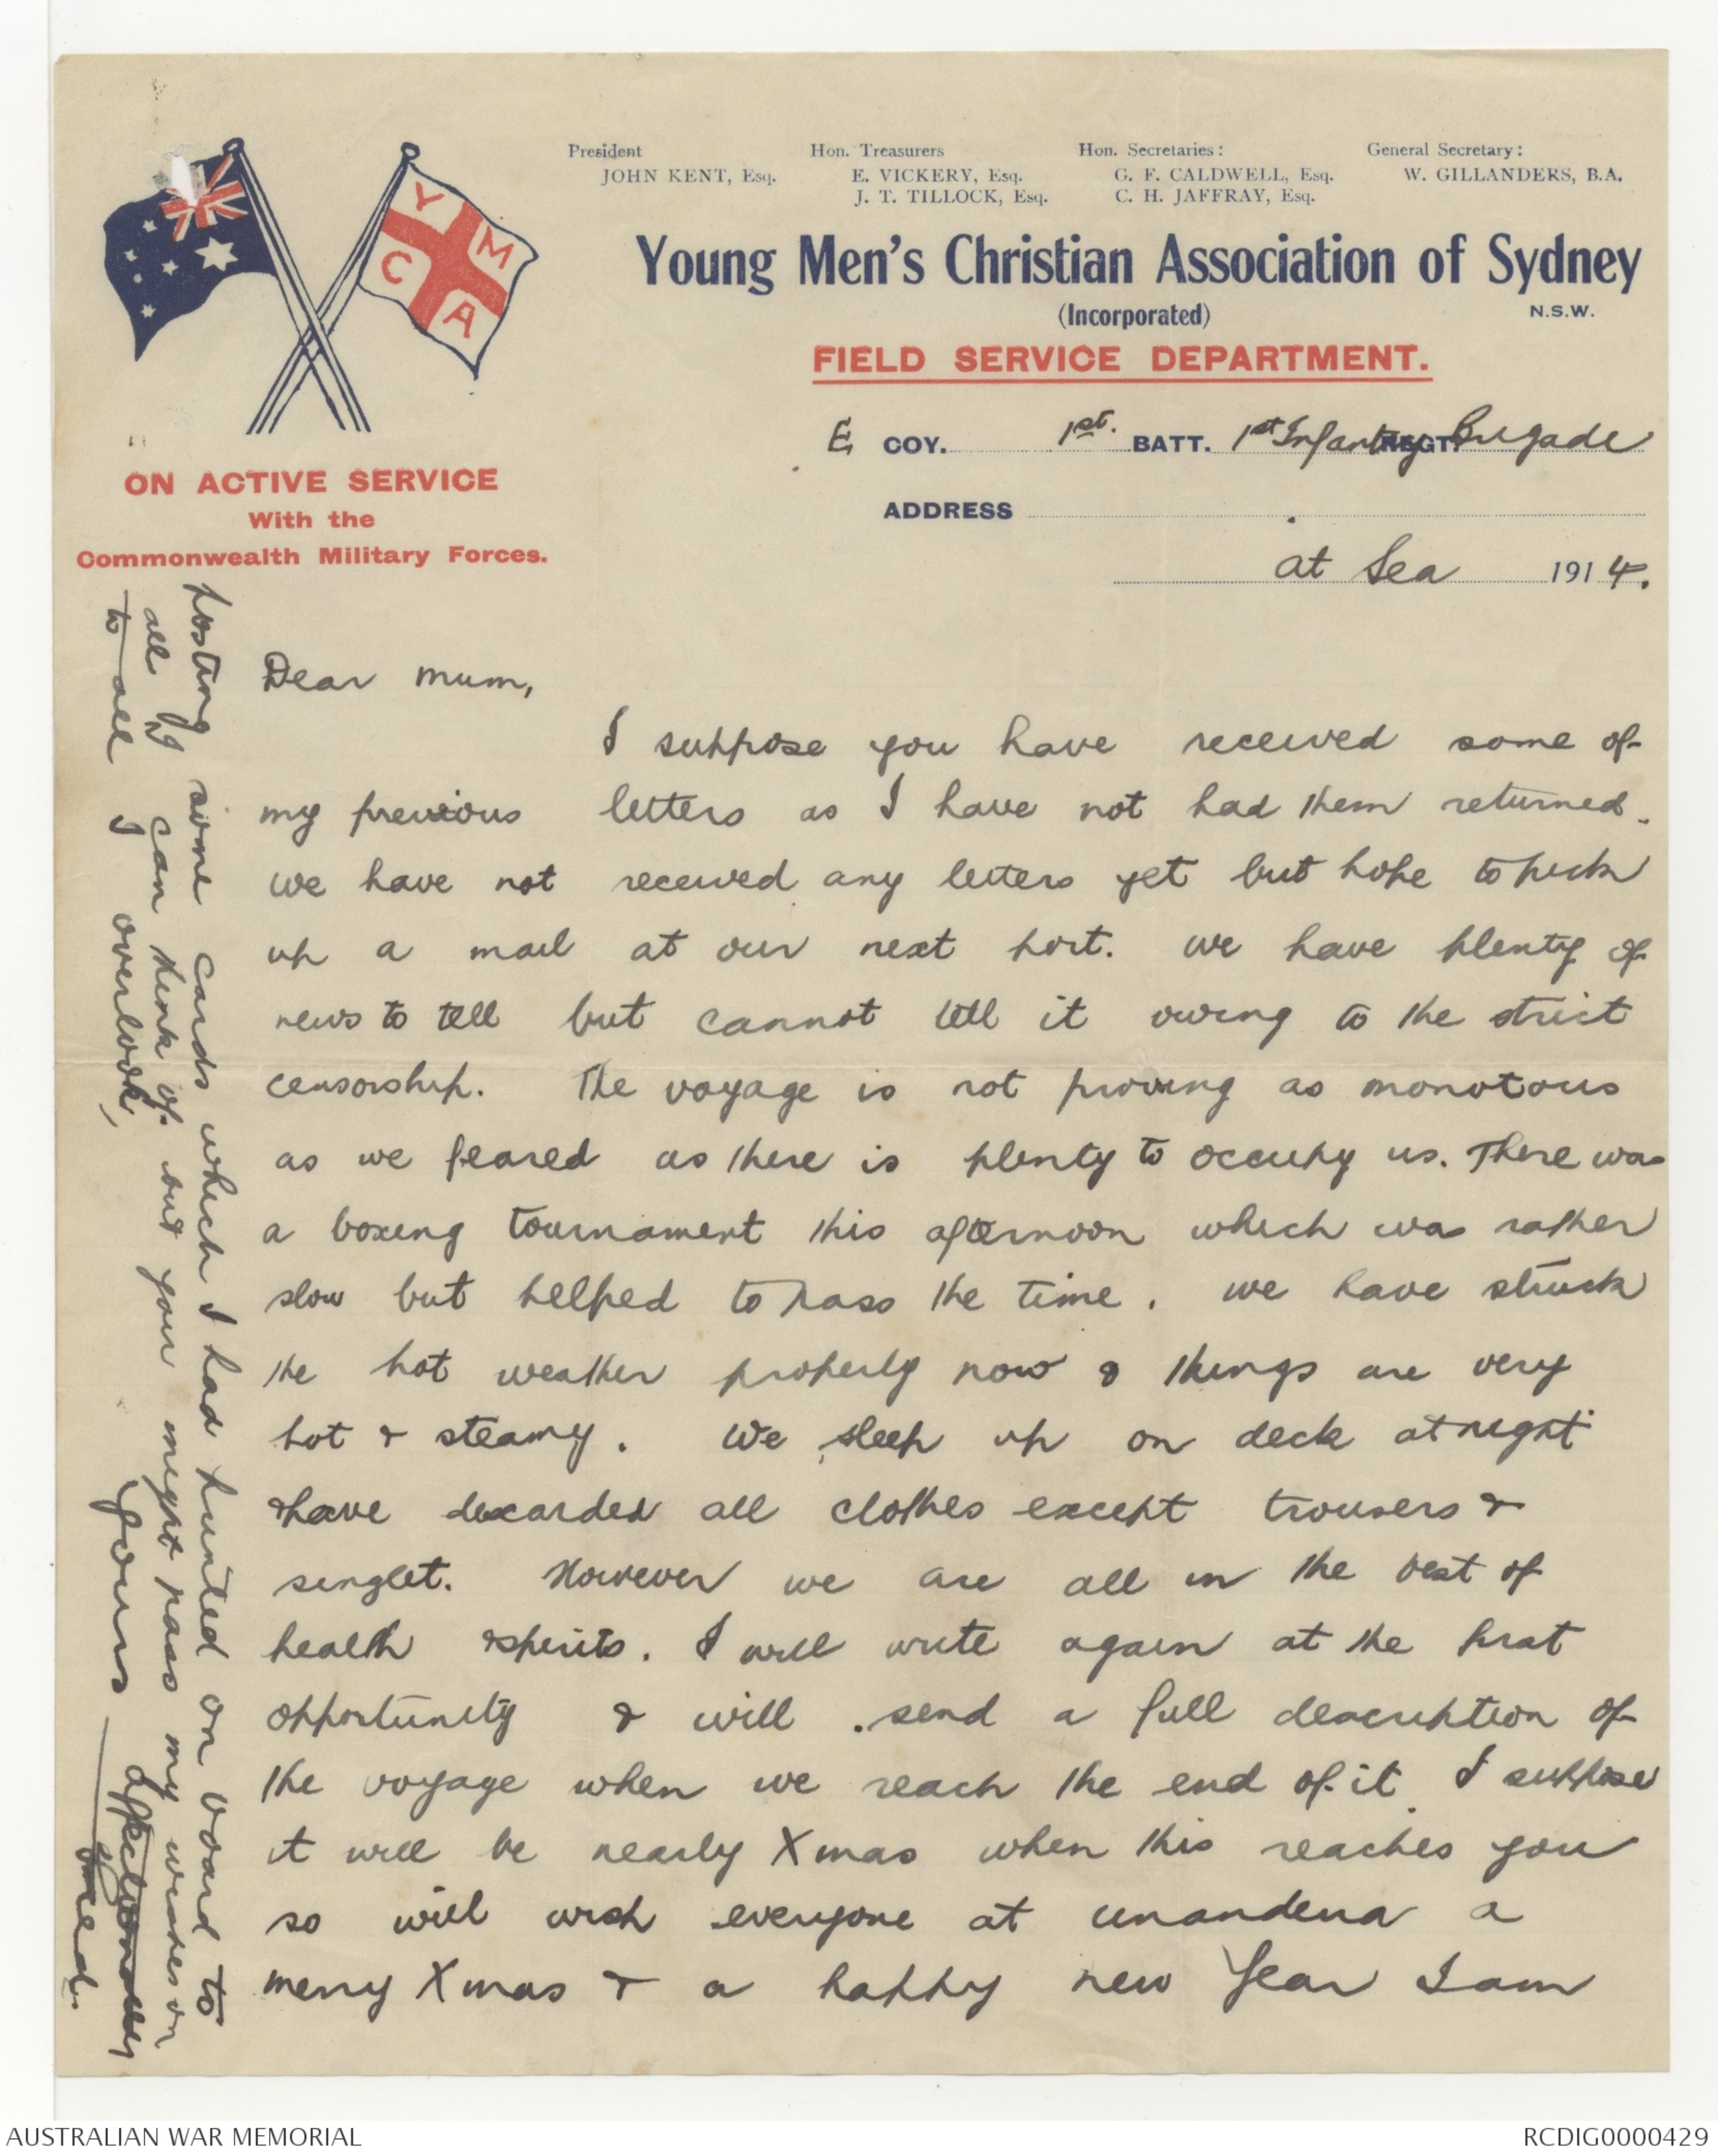 President
JOHN KENT, Esq.
Hon. Treasurers
E. VICKERY, Esq.
J. T. TILLOCK, Esq.
Hon. Secretaries:
G. F. CALDWELL, Esq.
C. H. JAFFRAY, Esq.
General Secretary:
W. GILLANDERS, B.A.
Y M C A
Young Men's Christian Association of Sydney
(Incorporated) N.S.W.
FIELD SERVICE DEPARTMENT.
E COY. 1st. BATT. 1st Infantry REGT. Brigade
ADDRESS
at Sea 1914.
ON ACTIVE SERVICE
With the
Commonwealth Military Forces.
Dear Mum,
I suppose you have received some of
my previous letters as I have not had them returned.
We have not received any letters yet but hope to pick
up a mail at our next port. We have plenty of
news to tell but cannot tell it owing to the strict
censorship. The voyage is not proving as monotous
as we feared as there is plenty to occupy us. There was
a boxing tournament this afternoon which was rather
slow but helped to pass the time. We have struck
the hot weather properly now & things are very
hot & steamy. We sleep up on deck at night
& have discarded all clothes except trousers &
singlet. However we are all in the best of
health & spirits. I will write again at the first
opportunity & will send a full description of
the voyage when we reach the end of it. I suppose
it will be nearly Xmas when this reaches you
so will wish everyone at Unandera a
merry Xmas & a happy new Year I am
posting some cards which I had printed on board to
all I can think of but you might pass my wishes on
to all I overlook,
Yours affectionately